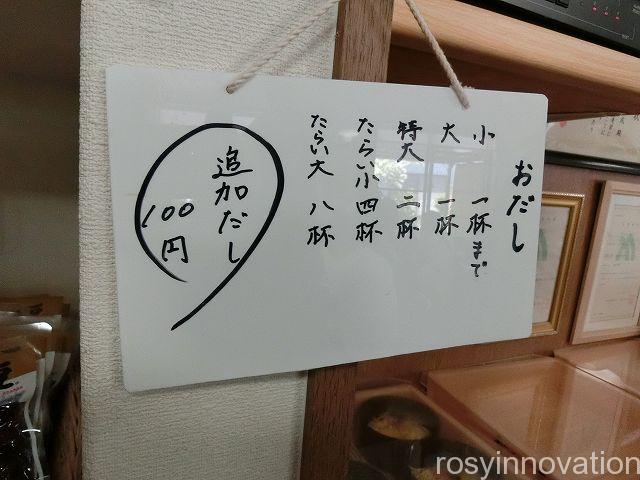 おだし
小 一杯まで
大 一杯
特大 二杯
たらい小 四杯
たらい大 八杯
追加だし
100円
rosyinnovation